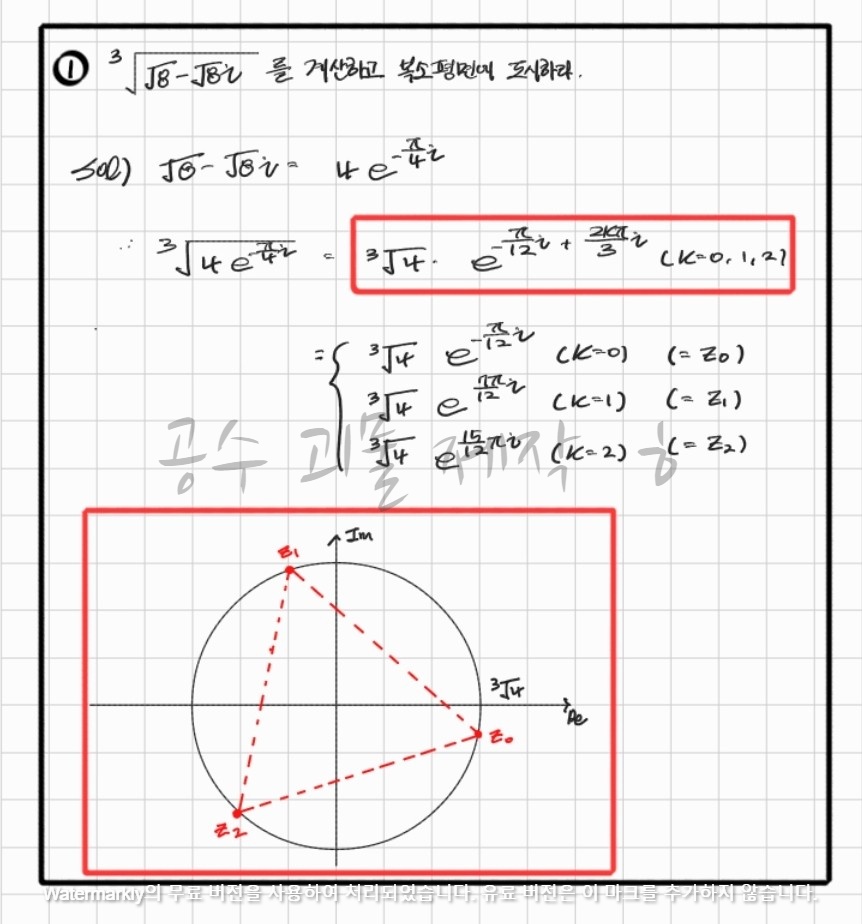 ① ³√(√8-√8i) 를 계산하고 복소평면에 도시하라.
sol) √8-√8i = 4e^(-π/4 i)
∴ ³√(4e^(-π/4 i)) = ³√4 · e^(-π/12 i + 2kπ/3 i) (k=0, 1, 2)
= { ³√4 e^(-π/12 i) (k=0) (= z₀)
³√4 e^(7π/12 i) (k=1) (= z₁)
³√4 e^(15/12 πi) (k=2) (= z₂)
공수 괴물 제작 ㅎ
Im
z₁
³√4
Re
z₀
z₂
Watermarkly의 무료 버전을 사용하여 처리되었습니다. 유료 버전은 이 마크를 추가하지 않습니다.